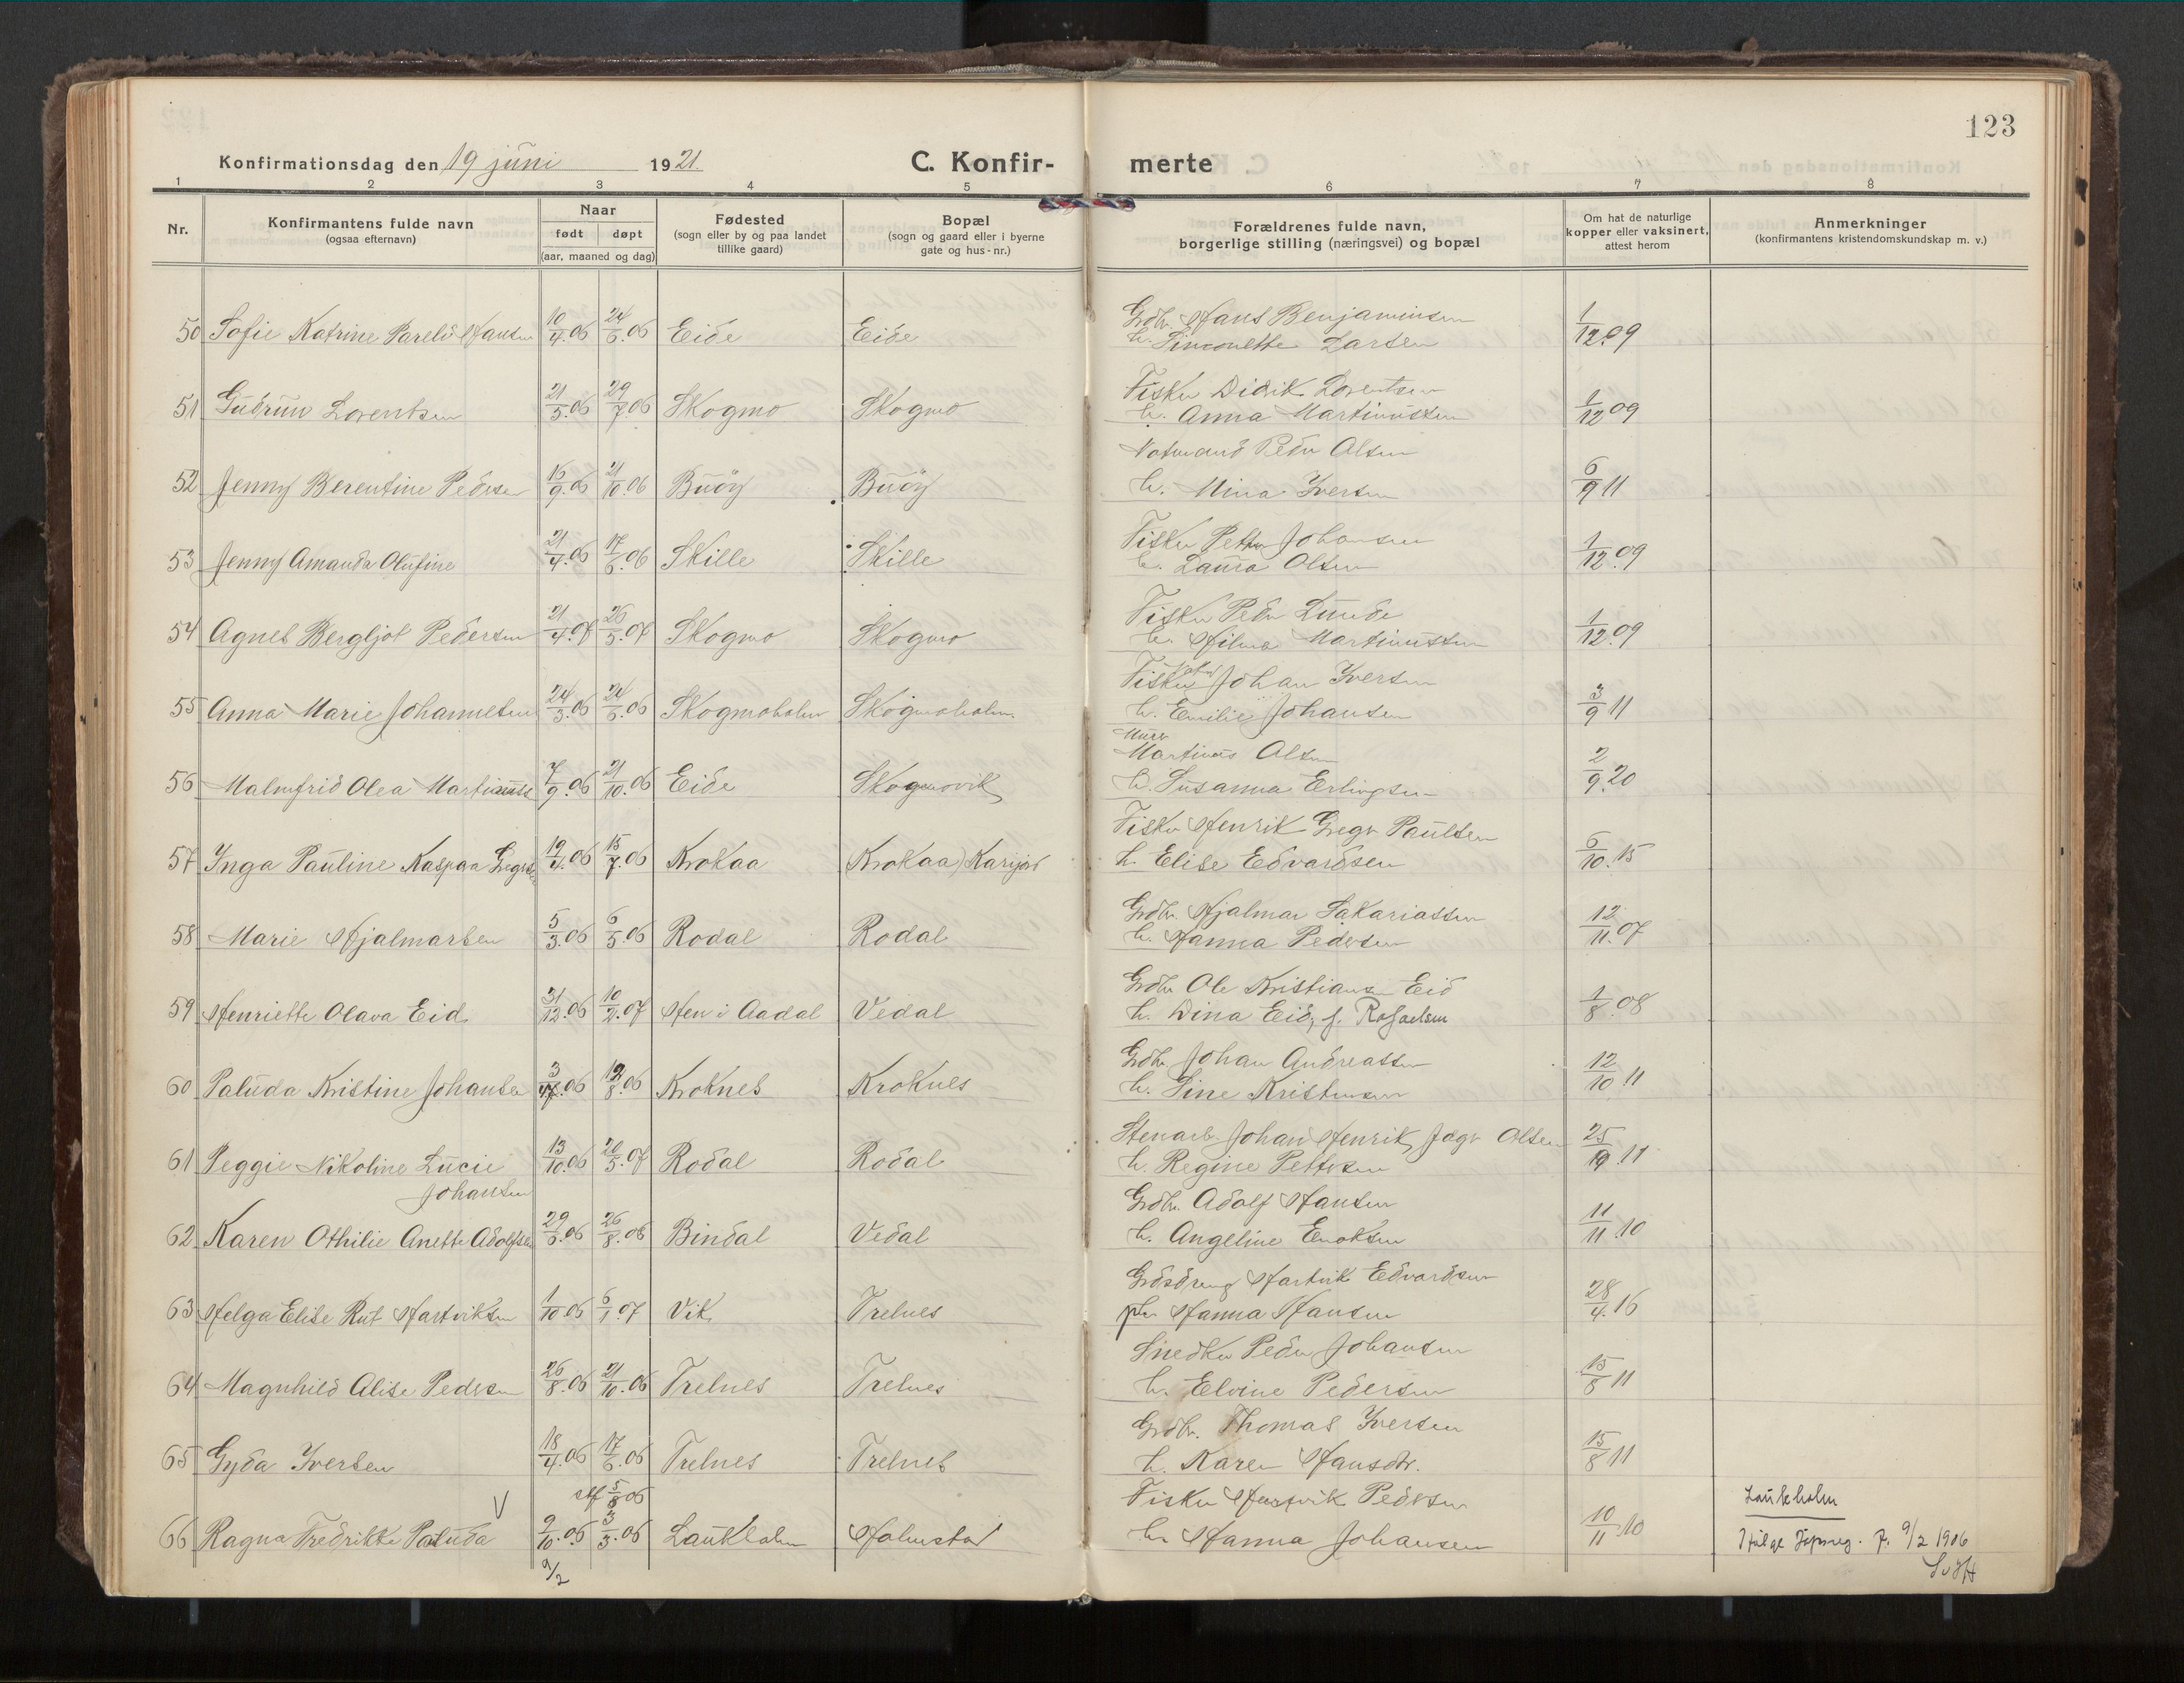 123
Konfirmationsdag den 19 juni 1921.
C. Konfirmerte
1 2 3 4 5 6 7 8
Nr. | Konfirmantens fulde navn (ogsaa efternavn) | Naar født døpt (aar, maaned og dag) | Fødested (sogn eller by og paa landet tillike gaard) | Bopæl (sogn og gaard eller i byerne gate og hus-nr.) | Forældrenes fulde navn, borgerlige stilling (næringsvei) og bopæl | Om hat de naturlige kopper eller vaksinert, attest herom | Anmerkninger (konfirmantens kristendomskundskap m. v.)
50 Sofie Katrine Hansen 10/4.06 24/6.06 Eide Eide Grdbr. Hans Benjaminsen 1/12.09
h. Simonette Larsen
51 Gudrun Lorentsen 21/5.06 29/7.06 Skogmo Skogmo Fisker Didik Lorentsen 1/12 09
h. Anna Martinussen
52 Jenny Berentine Pedersen 15/9.06 21/10.06 Buöy Buöy Notmand Peder Olsen 6/9 11
h. Mina Iversen
53 Jenny Amanda Olufine 21/4.06 17/6.06 Skille Skille Fisker Petter Johansen 1/12.09
h. Laura Olsen
54 Agnes Bergljot Pedersen 21/4.07 26/5.07 Skogmo Skogmo Fisker Peder Lunde 1/12.09
h. Hilma Martinussen
55 Anna Marie Johannesen 24/3.06 24/6.06 Skogmoholm Skogmoholm. Fisker Johan Iversen 3/9 11
h. Emilie Johansen
56 Malmfrid Olea Martinuss 7/9.06 21/10.06 Eide Skogmovik Murer Martinus Olsen 2/9.20
h. Susanna Erlingsen
57 Inga Pauline Kaspara Gregersen 19/4.06 15/7.06 Krokaa Krokaa) Karijord Fisker Henrik Greger Paulsen 6/10.15
h. Elise Edvardsen
58 Marie Hjalmarsen 5/3.06 6/5.06 Rodal Rodal Grdbr. Hjalmar Sakariassen 12/11.07
h. Hanna Pedersen
59 Henriette Olava Eid 31/12.06 10/2.07 Hen i Aadal Vedal Grdbr Ole Kristiansen Eid 1/8.08
h. Dina Eid, f. Rafaelsen
60 Paluda Kristine Johansen 3/7.06 12/8.06 Kroknes Kroknes Grdbr Johan Andreassen 12/10 11
h. Sine Kristensen
61 Peggie Nikoline Lucie Johansen 13/10.06 20/5.07 Rodal Rodal Stenarb. Johan Henrik Jager Olsen 25/19.11
h. Regine Pettersen
62 Karen Othilie Anette Adolfsen 29/6.06 26/8.06 Bindal Vedal Grdbr. Adolf Hansen 11/11.10
h. Angeline Enoksen
63 Helga Elise Rut Hartviksen 1/10 06 6/1.07 Vik Trelnes Grdsdreng Hartvik Edvardsen 28/4.16
pk. Hanna Hansen
64 Magnhild Alise Pedersen 26/8.06 21/10.06 Trelnes Trelnes Snedker Peder Johansen 15/8 11
h. Elvine Pedersen
65 Gyda Iversen 18/4.06 17/6.06 Trelnes Trelnes Grdbr. Thomas Iversen 15/8 11
h. Karen Hansdtr.
stf 5/8 06
66 Ragna Fredrikke Paluda 9/10.06 3/3.06 Laukholm Holmstad Fisker Hartvik Pedersen 10/11.10 Laukholm
h. Hanna Johansen Ifølge Døpsreg. f. 9/2 1906
9/2